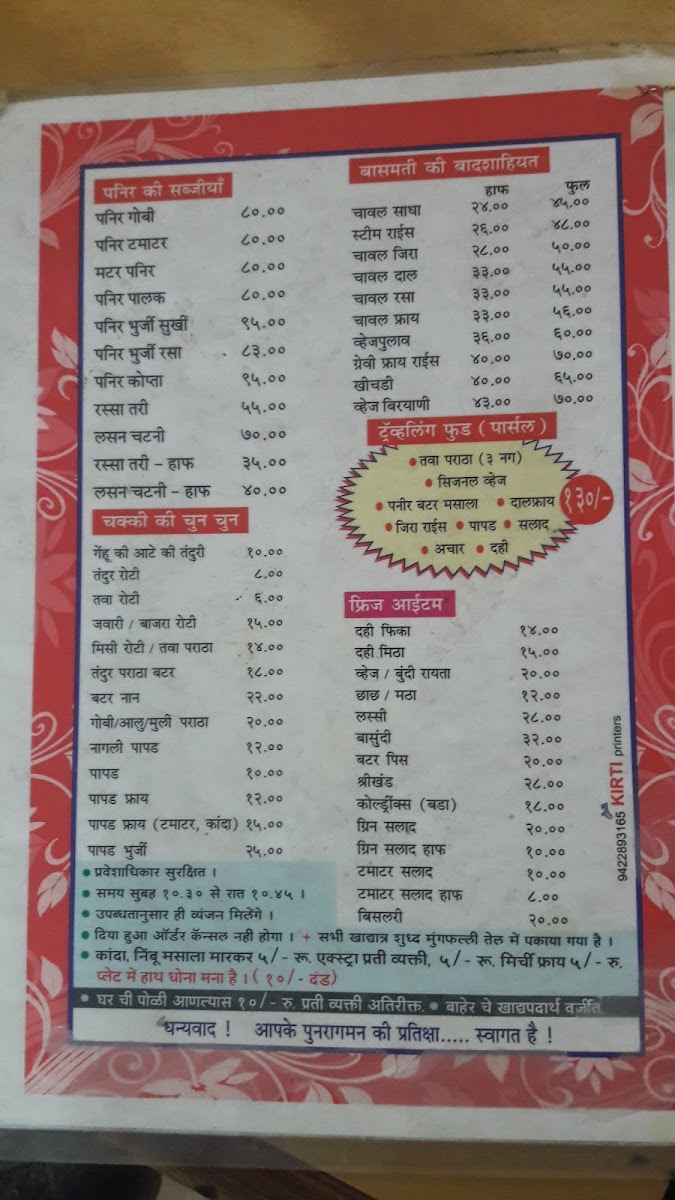 पनिर की सब्जीयाँ
पनिर गोबी ८०.००
पनिर टमाटर ८०.००
मटर पनिर ८०.००
पनिर पालक ८०.००
पनिर भुर्जी सुखीं ९५.००
पनिर भुर्जी रसा ८३.००
पनिर कोप्ता ९५.००
रस्सा तरी ५५.००
लसन चटनी ७०.००
रस्सा तरी - हाफ ३५.००
लसन चटनी - हाफ ४०.००
चक्की की चुन चुन
गेंहू की आटे की तंदुरी १०.००
तंदुर रोटी ८.००
तवा रोटी ६.००
जवारी / बाजरा रोटी १५.००
मिसी रोटी / तवा पराठा १४.००
तंदुर पराठा बटर १८.००
बटर नान २२.००
गोबी/आलु/मुली पराठा २०.००
नागली पापड १२.००
पापड १०.००
पापड फ्राय १२.००
पापड फ्राय (टमाटर, कांदा) १५.००
पापड भुर्जी २५.००
बासमती की बादशाहियत
हाफ फुल
चावल साधा २४.०० ४५.००
स्टीम राईस २६.०० ४८.००
चावल जिरा २८.०० ५०.००
चावल दाल ३३.०० ५५.००
चावल रसा ३३.०० ५५.००
चावल फ्राय ३३.०० ५६.००
व्हेजपुलाव ३६.०० ६०.००
ग्रेवी फ्राय राईस ४०.०० ७०.००
खीचडी ४०.०० ६५.००
व्हेज बिरयाणी ४३.०० ७०.००
ट्रॅव्हलिंग फुड ( पार्सल )
• तवा पराठा (३ नग)
• सिजनल व्हेज
• पनीर बटर मसाला • दालफ्राय
• जिरा राईस • पापड • सलाद
• अचार • दही
१३०/-
फ्रिज आईटम
दही फिका १४.००
दही मिठा १५.००
व्हेज / बुंदी रायता २०.००
छाछ / मठा १२.००
लस्सी २८.००
बासुंदी ३२.००
बटर पिस २०.००
श्रीखंड २८.००
कोल्ड्रींक्स (बडा) १८.००
ग्रिन सलाद २०.००
ग्रिन सलाद हाफ १०.००
टमाटर सलाद १०.००
टमाटर सलाद हाफ ८.००
बिसलरी २०.००
• प्रवेशाधिकार सुरक्षित ।
• समय सुबह १०.३० से रात १०.४५ ।
• उपब्धतानुसार ही व्यंजन मिलेंगे ।
• दिया हुआ ऑर्डर कॅन्सल नही होगा । + सभी खाद्यान्न शुध्द मुंगफल्ली तेल में पकाया गया है ।
• कांदा, निंबू मसाला मारकर ५/- रू. एक्स्ट्रा प्रती व्यक्ती, ५/- रू. मिर्ची फ्राय ५/- रु.
प्लेट में हाथ धोना मना है । ( १०/- दंड)
• घर ची पोळी आणल्यास १०/- रु. प्रती व्यक्ती अतिरीक्त. • बाहेर चे खाद्यपदार्थ वर्जीत.
धन्यवाद ! आपके पुनरागमन की प्रतिक्षा..... स्वागत है !
9422893165 KIRTI printers